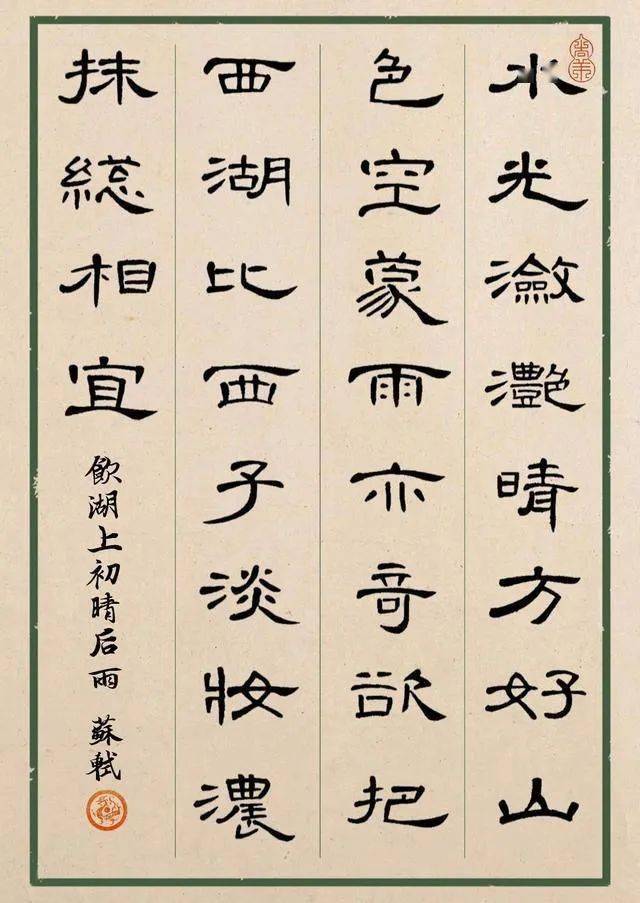 水光瀲灩晴方好山
色空蒙雨亦奇欲把
西湖比西子淡妝濃
抹總相宜
飲湖上初晴后雨 蘇軾